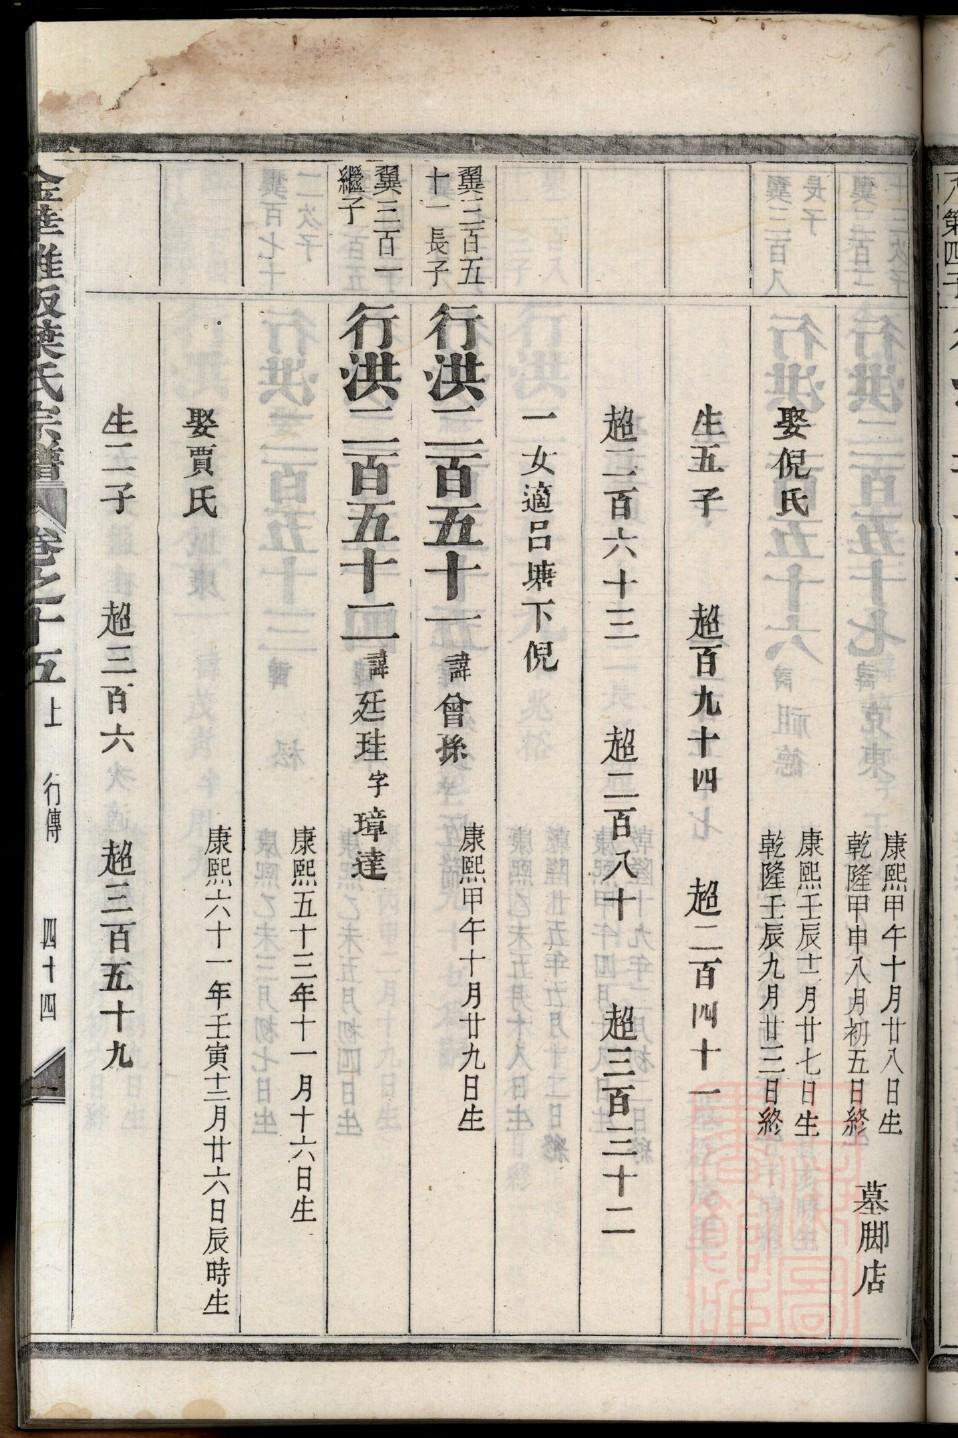 康熙甲午十月廿八日生
乾隆甲申八月初五日終
墓脚店
娶倪氏
康熙壬辰十二月廿七日生
乾隆壬辰九月廿三日終
生五子 超百九十四 超二百四十一
超二百六十三 超二百八十 超三百三十二
一女適呂塘下倪
翼三百五
十一長子
行洪二百五十一諱曾孫
康熙甲午十月廿九日生
翼三百一
繼子
行洪二百五十二諱廷珪字璋達
康熙五十三年十一月十六日生
娶賈氏
康熙六十一年壬寅十二月廿六日辰時生
生二子 超三百六 超三百五十九
金華雅畈葉氏宗譜 卷之十五上 行傳 四十四